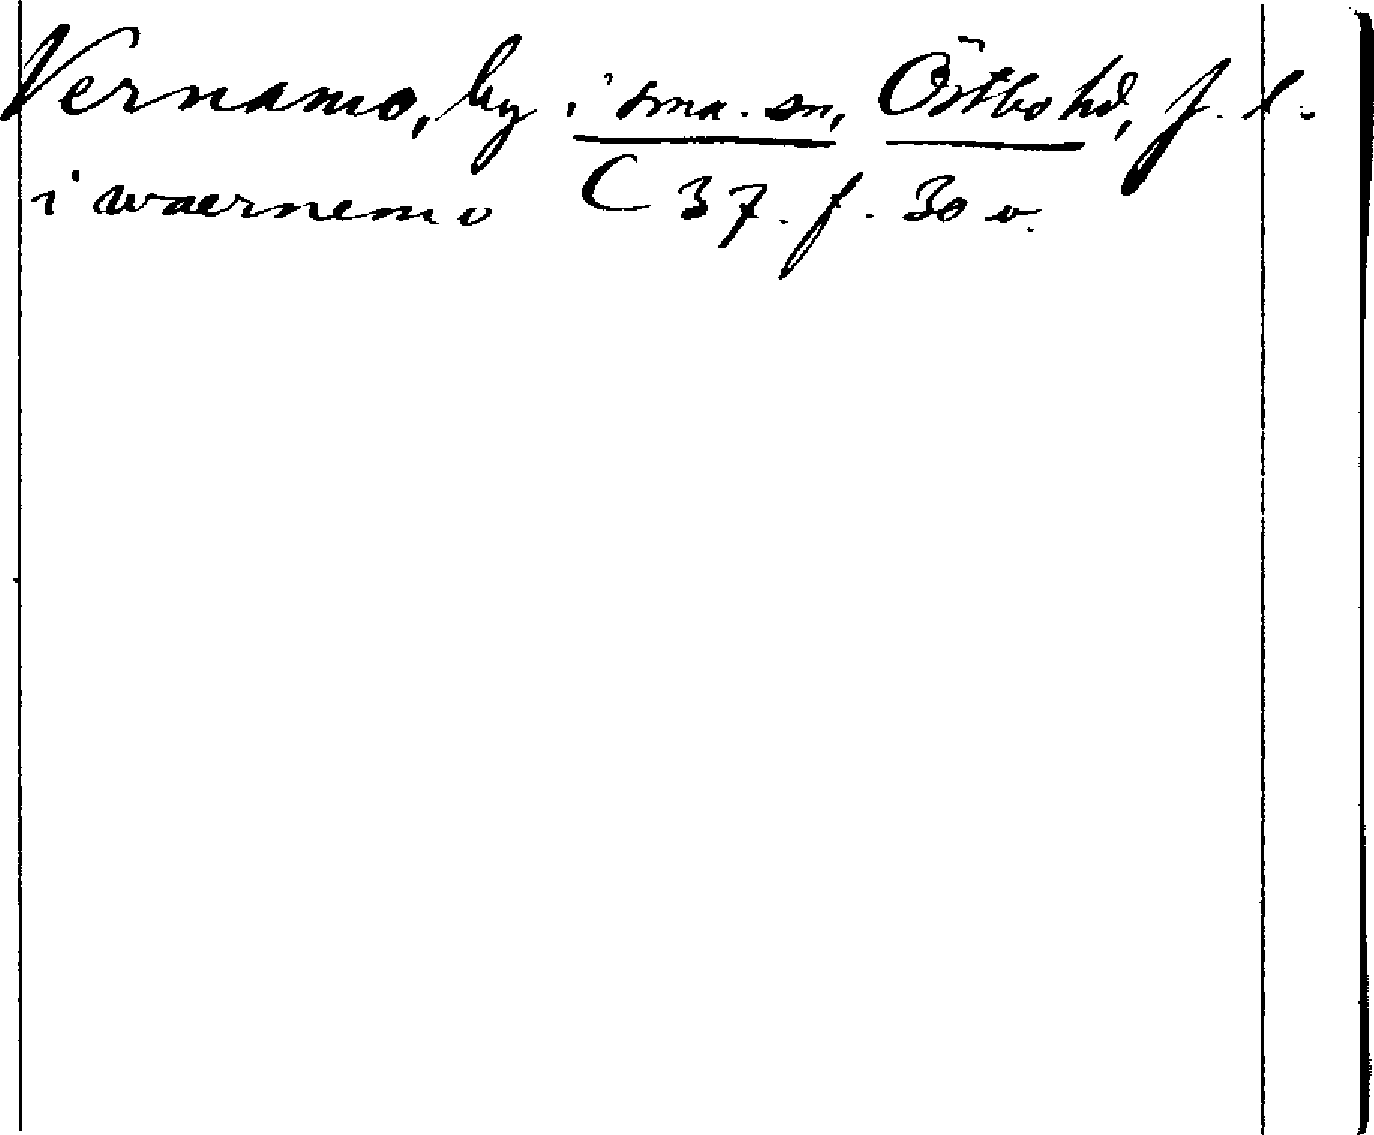 Vernamo, by i sma. sn, Östbo hd, f. l.
i waernemo C 37. f. 30 v.